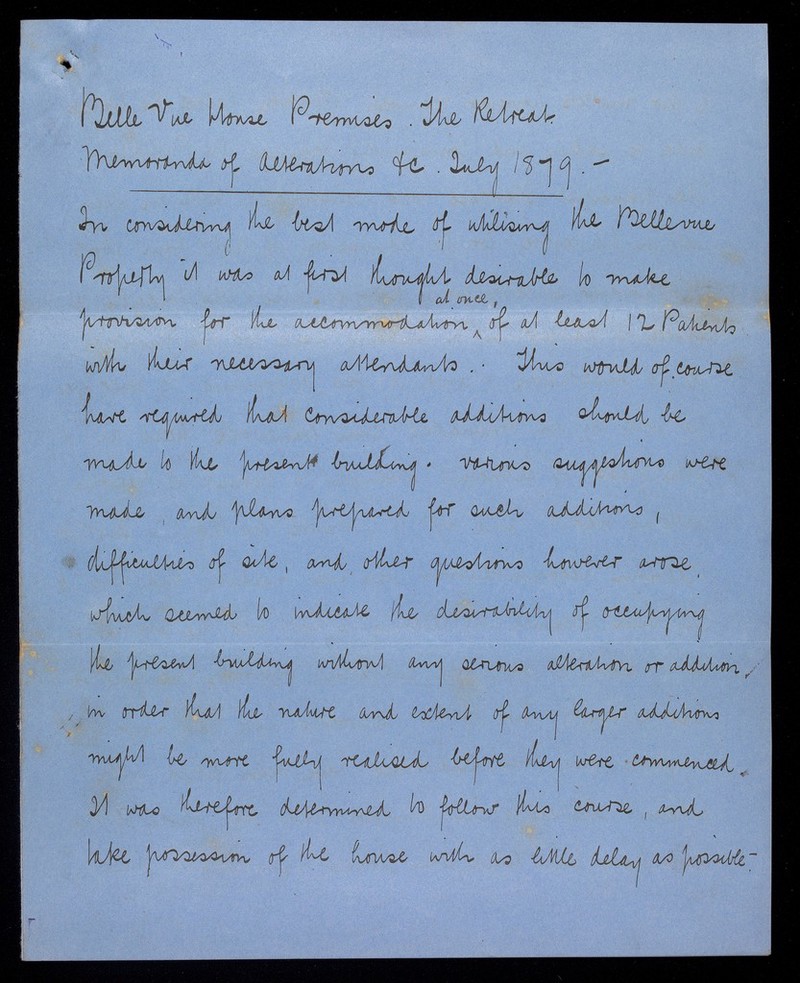 Belle Vue House Premises. The Retreat.
Memoranda of Alterations &c. July 1879. –
In considering the best mode of utilising the Bellevue
Property it was at first thought desirable to make
at once,
provision for the accommodation ^ of at least 12 Patients
with their necessary attendants. . This would of course
have required that considerable additions should be
made to the present building. various suggestions were
made, and plans prepared for such additions,
difficulties of site, and other questions however arose,
which seemed to indicate the desirability of occupying
the present building without any serious alteration or addition,
in order that the nature and extent of any larger additions
might be more fully realised before they were commenced.
It was therefore determined to follow this course, and
take possession of the house with as little delay as possible –